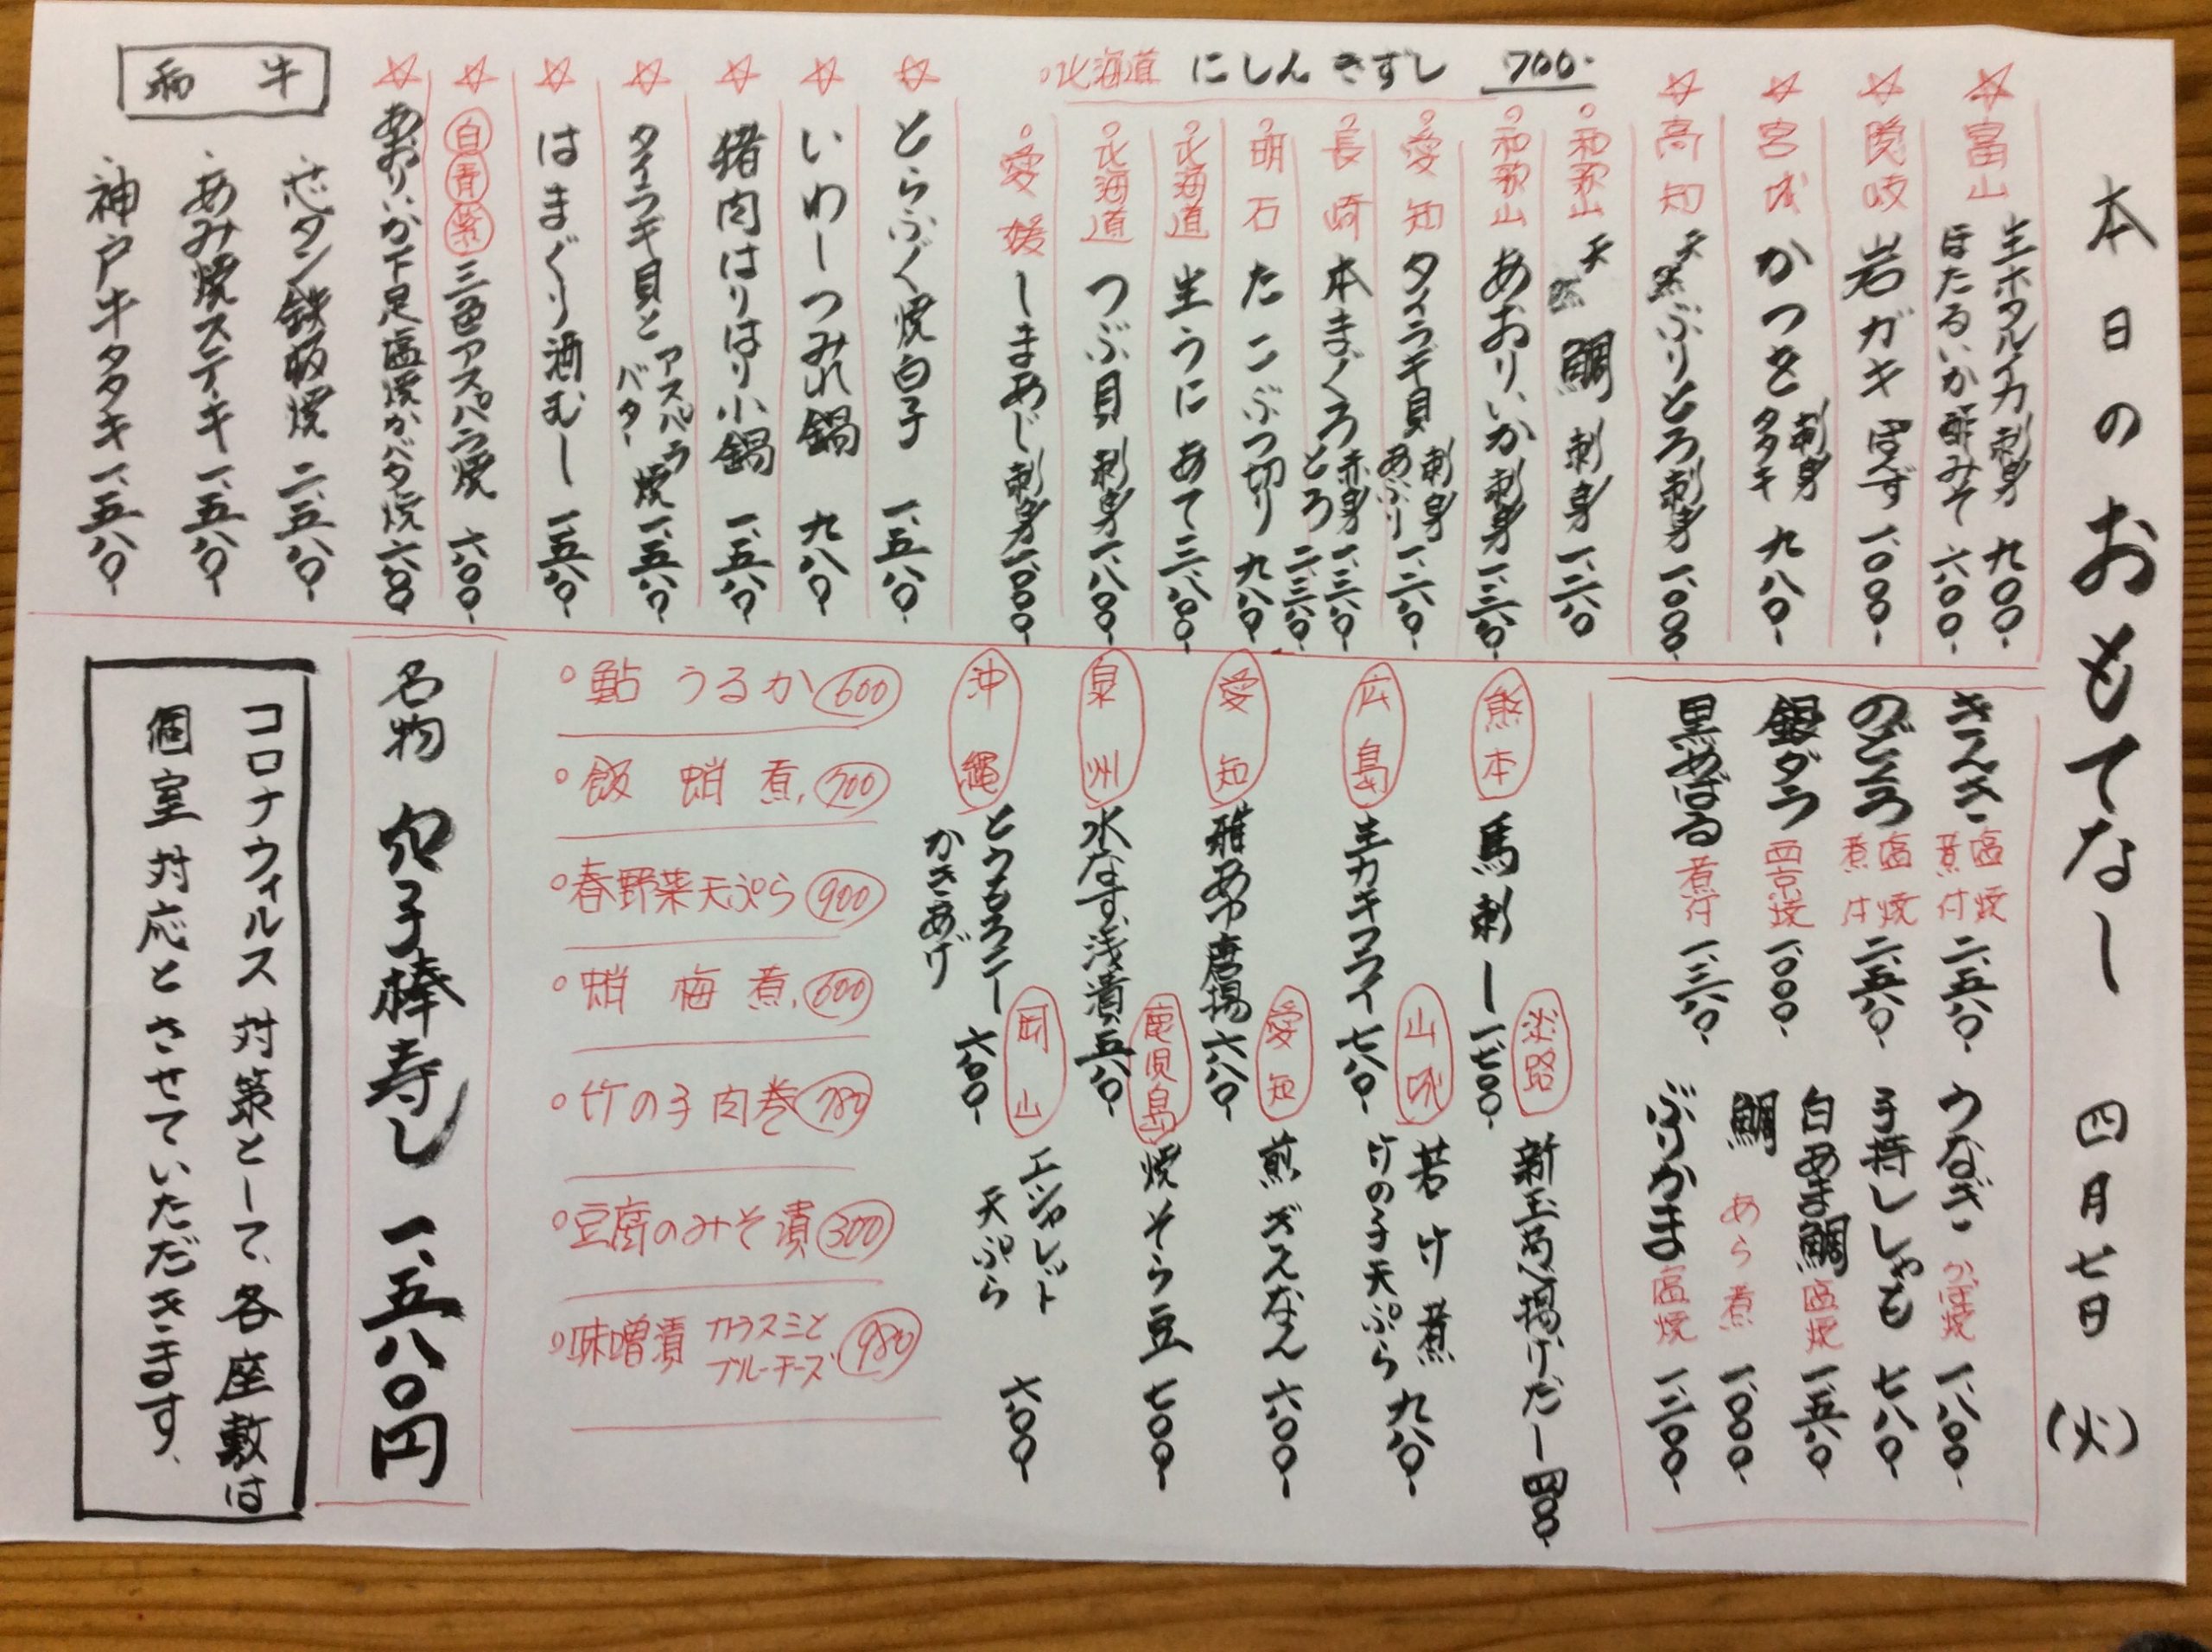 本日のおもてなし 四月七日(火)
☆富山 生ホタルイカ刺身 九〇〇
ほたるいか酢みそ 六〇〇
☆隠岐 岩ガキ ぽんず 一、〇〇〇
☆宮城 かつを 刺身 タタキ 九八〇
☆高知 天然ぶりとろ刺身 一、〇〇〇
○和歌山 天然 鯛 刺身
○和歌山 あおりいか刺身
○愛知 タイラギ貝 刺身 あぶり
○長崎 本まぐろ 赤身
とろ
○明石 たこぶつ切り 九八〇
○北海道 生うに あて
○北海道 つぶ貝 刺身
○愛媛 しまあじ刺身
○北海道 にしん きずし 700-
☆とらふぐ焼白子 一、五八〇
☆いわしつみれ鍋 九八〇
☆猪肉はりはり小鍋 一、五八〇
☆タイラギ貝とアスパラバター焼 一、五八〇
☆はまぐり酒むし 一、五八〇
☆白青紫 三色アスパラ焼 六〇〇
☆あおりいか下足塩焼かバタ焼 六〇〇
和牛
芯タン鉄板焼 二、五八〇
あみ焼ステーキ 一、五八〇
神戸牛タタキ 一、五八〇
きんき 塩焼 煮付 二、五八〇
のどぐろ 塩焼 煮付 二、五八〇
銀ダラ 西京焼 一、〇〇〇
黒めばる 煮付 一、三八〇
うなぎ かば焼 一、八〇〇
子持ししゃも 七八〇
白あま鯛 塩焼 一、五八〇
鯛 あら煮 一、〇〇〇
ぶりかま 塩焼
熊本 馬刺し 一、七〇〇
広島 生カキフライ 七八〇
愛知 稚あゆ唐揚 六八〇
泉州 水なす浅漬 五八〇
沖縄 とうもろこしかきあげ 六〇〇
淡路 新玉ねぎ揚げだし 四八〇
山城 若竹煮
竹の子天ぷら 九八〇
愛知 煎ぎんなん 六〇〇
鹿児島 焼そら豆 七〇〇
岡山 エシャレット天ぷら 六〇〇
○鮎うるか 600
○飯蛸煮 700
○春野菜天ぷら 900
○蛸梅煮 600
○竹の子肉巻 780
○豆腐のみそ漬 300
○味噌漬 カラスミとブルーチーズ 980
名物 穴子棒寿し 一、五八〇円
コロナウィルス対策として、各座敷は
個室対応とさせていただきます、